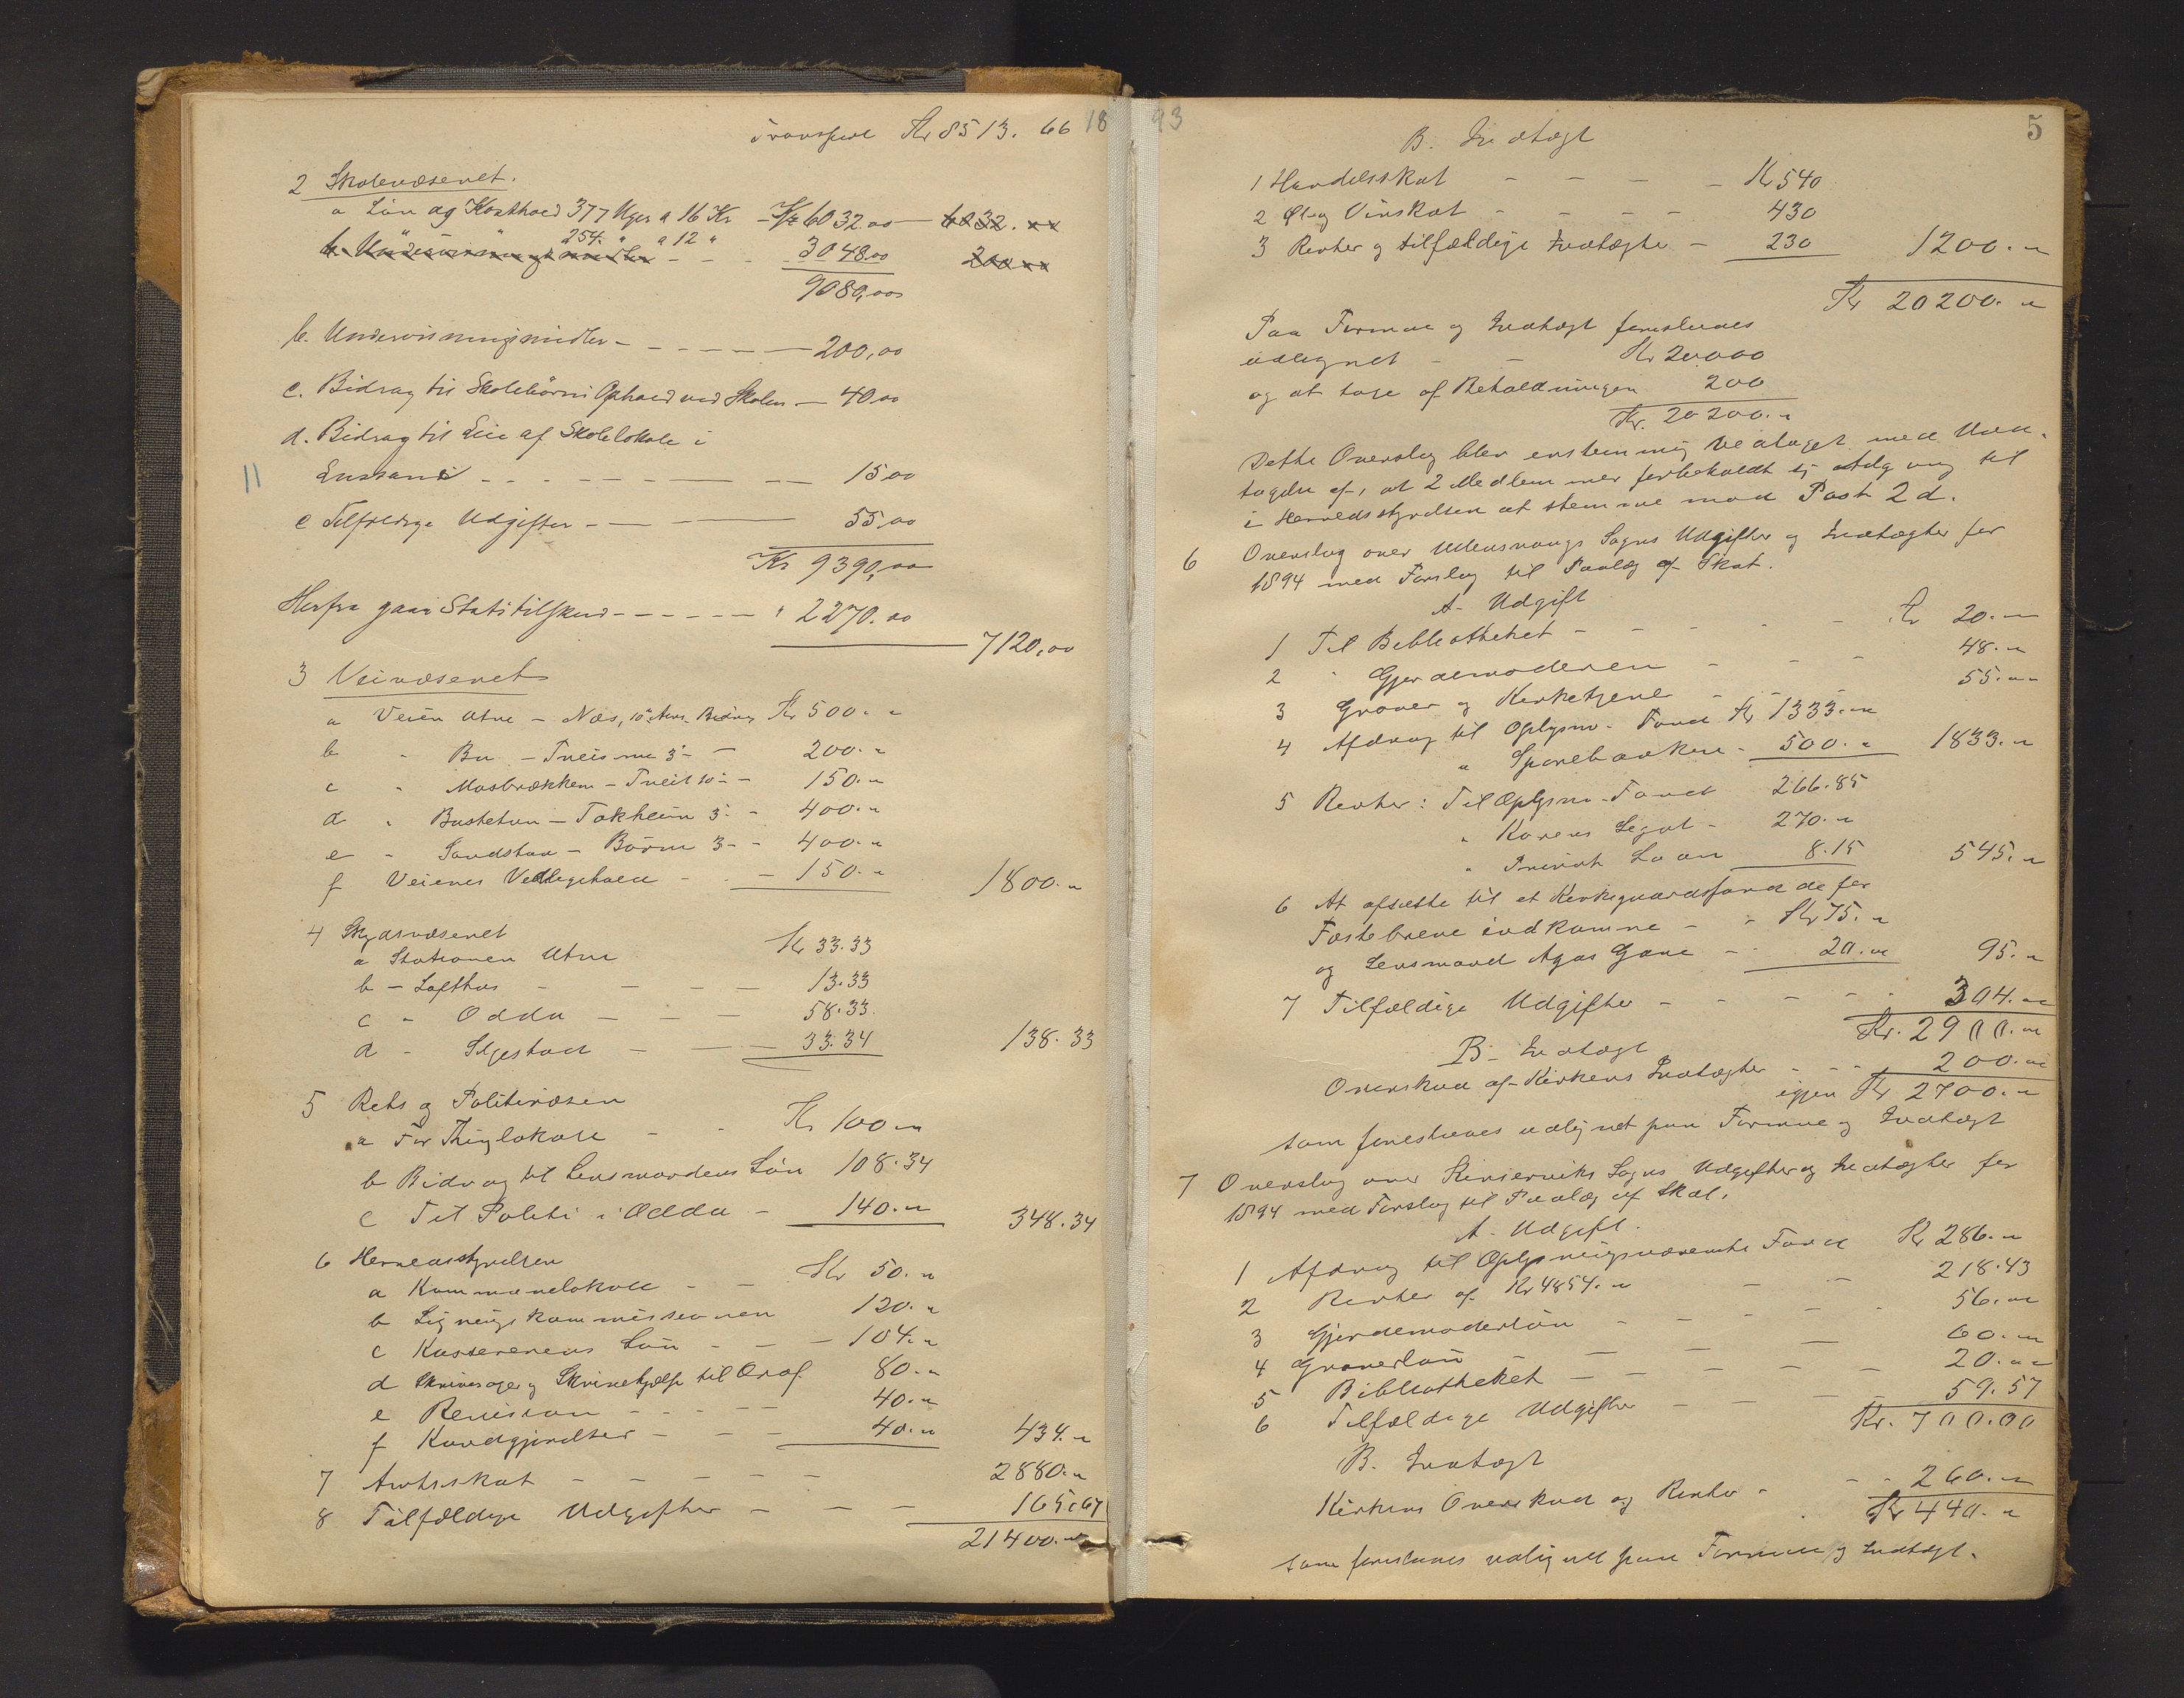 Transport Kr 8513. 66
18
2 Skolevæsenet.
a Løn og Kosthold 377 Uger a 16 Kr - Kr 6032.00 - 6032. "
" " 254 " a 12 " 3048.00
b. Undervisningsmidler - - - 200. "
9080,00
b. Undervisningsmidler - - - - - - 200,00
c. Bidrag til Skolebørns Ophold ved Skolen - 40,00
d. Bidrag til Leie af Skolelokale i
11
- - - - - - 15,00
e Tilfeldige Udgifter - - - 55,00
Kr 9390,00
Herfra gaar Statstilskud - - - - - " 2270.00
7120,00
3 Veivæsenet
a Veien Utne - Næs, 10de Aars Bidrag Kr 500. "
b " Bu - 3- - 200. "
c " - 10- - 150. "
d " Bustetun - Tokheim 3- - 400. "
e " Sandstøa - Børve 3- - 400. "
f Veienes Vedligehold - - - 150. " 1800. "
4 Skydsvæsenet
a Stationen Utne Kr 33.33
b - Lofthus - - - - 13.33
c " Odda - - - 58.33.
d - Seljestad - - - 33.34 138.33
5 Rets og Politivæsen
a For Thinglokale - - Kr 100 "
b Bidrag til Lensmandens Løn 108.34
c Til Politi i Odda - 140. " 348.34
6 Herredsstyrelsen
a Kommunelokale - - Kr 50. "
b Ligningskommissionen 120. "
c Kassererens Løn - - - 104. "
d Skrivesager og Skrivehjælp til Ordf. 80. "
e Revision - - - - - 40. "
f Kundgjørelser - - - 40. " 434. "
7 Amtsskat - - - - - 2880. "
8 Tilfældige Udgifter - - - 165.67
21400. "
93
5
B. Indtægt
1 Handelsskat - - - - Kr 540
2 Øl og Vinskat - - - - 430
3 Renter og tilfældige Indtægter - 230 1200. "
Kr 20200. "
Paa Formue og Indtægt foreslaaes
udlignet - - Kr 20,000
og at tage af Beholdningen 200
Kr. 20200. "
Dette Overslag blev enstemmig vedtaget med Und-
tagelse af, at 2 Medlemmer forbeholdt sig Adgang til
i Herredsstyrelsen at stemme mod Post 2 d.
6 Overslag over Ullensvangs Sogns Udgifter og Indtægter for
1894 med Forslag til Paalæg af Skat.
A- Udgift
1 Til Bibliotheket - - - - - Kr 20. "
2 " Gjordemoderen - - - 48. "
3 Graver og Kirketjener - - - 55. "
4 Afdrag til Oplysn- Fond Kr 1333. "
" Sparebanken - 500. " 1833. "
5 Renter: Til Oplysn- Fondet 266.85
" Karens Legat - 270. "
" Privat Laan 8.15 545. "
6 At afsætte til et Kirkegaardsfond de for
Fæstebreve indkomne - - Kr 75. "
og Lensmand Agas Gave - - 20. " 95. "
7 Tilfældige Udgifter - - - - - 304. "
Kr. 2900. "
B- Indtægt
Overskud af Kirkens Indtægter - - - 200. "
igjen Kr 2700. "
som foreslaaes udlignet paa Formue og Indtægt
7 Overslag over Kinserviks Sogns Udgifter og Indtægter for
1894 med Forslag til Paalæg af Skat.
A- Udgift.
1 Afdrag til Oplysningsvæsenets Fond Kr 286. "
2 Renter af Kr 4854. " - - 218.43
3 Gjordemoderløn - - - - 56. "
4 Graverløn - - - - 60. "
5 Bibliotheket - - - - - 20. "
6 Tilfældige Udgifter - - - - 59.57
Kr. 700.00
B. Indtægt
Kirkens Overskud og Renter - - - 260. "
Kr 440. "
som foreslaaes udlignet paa Formue og Indtægt.